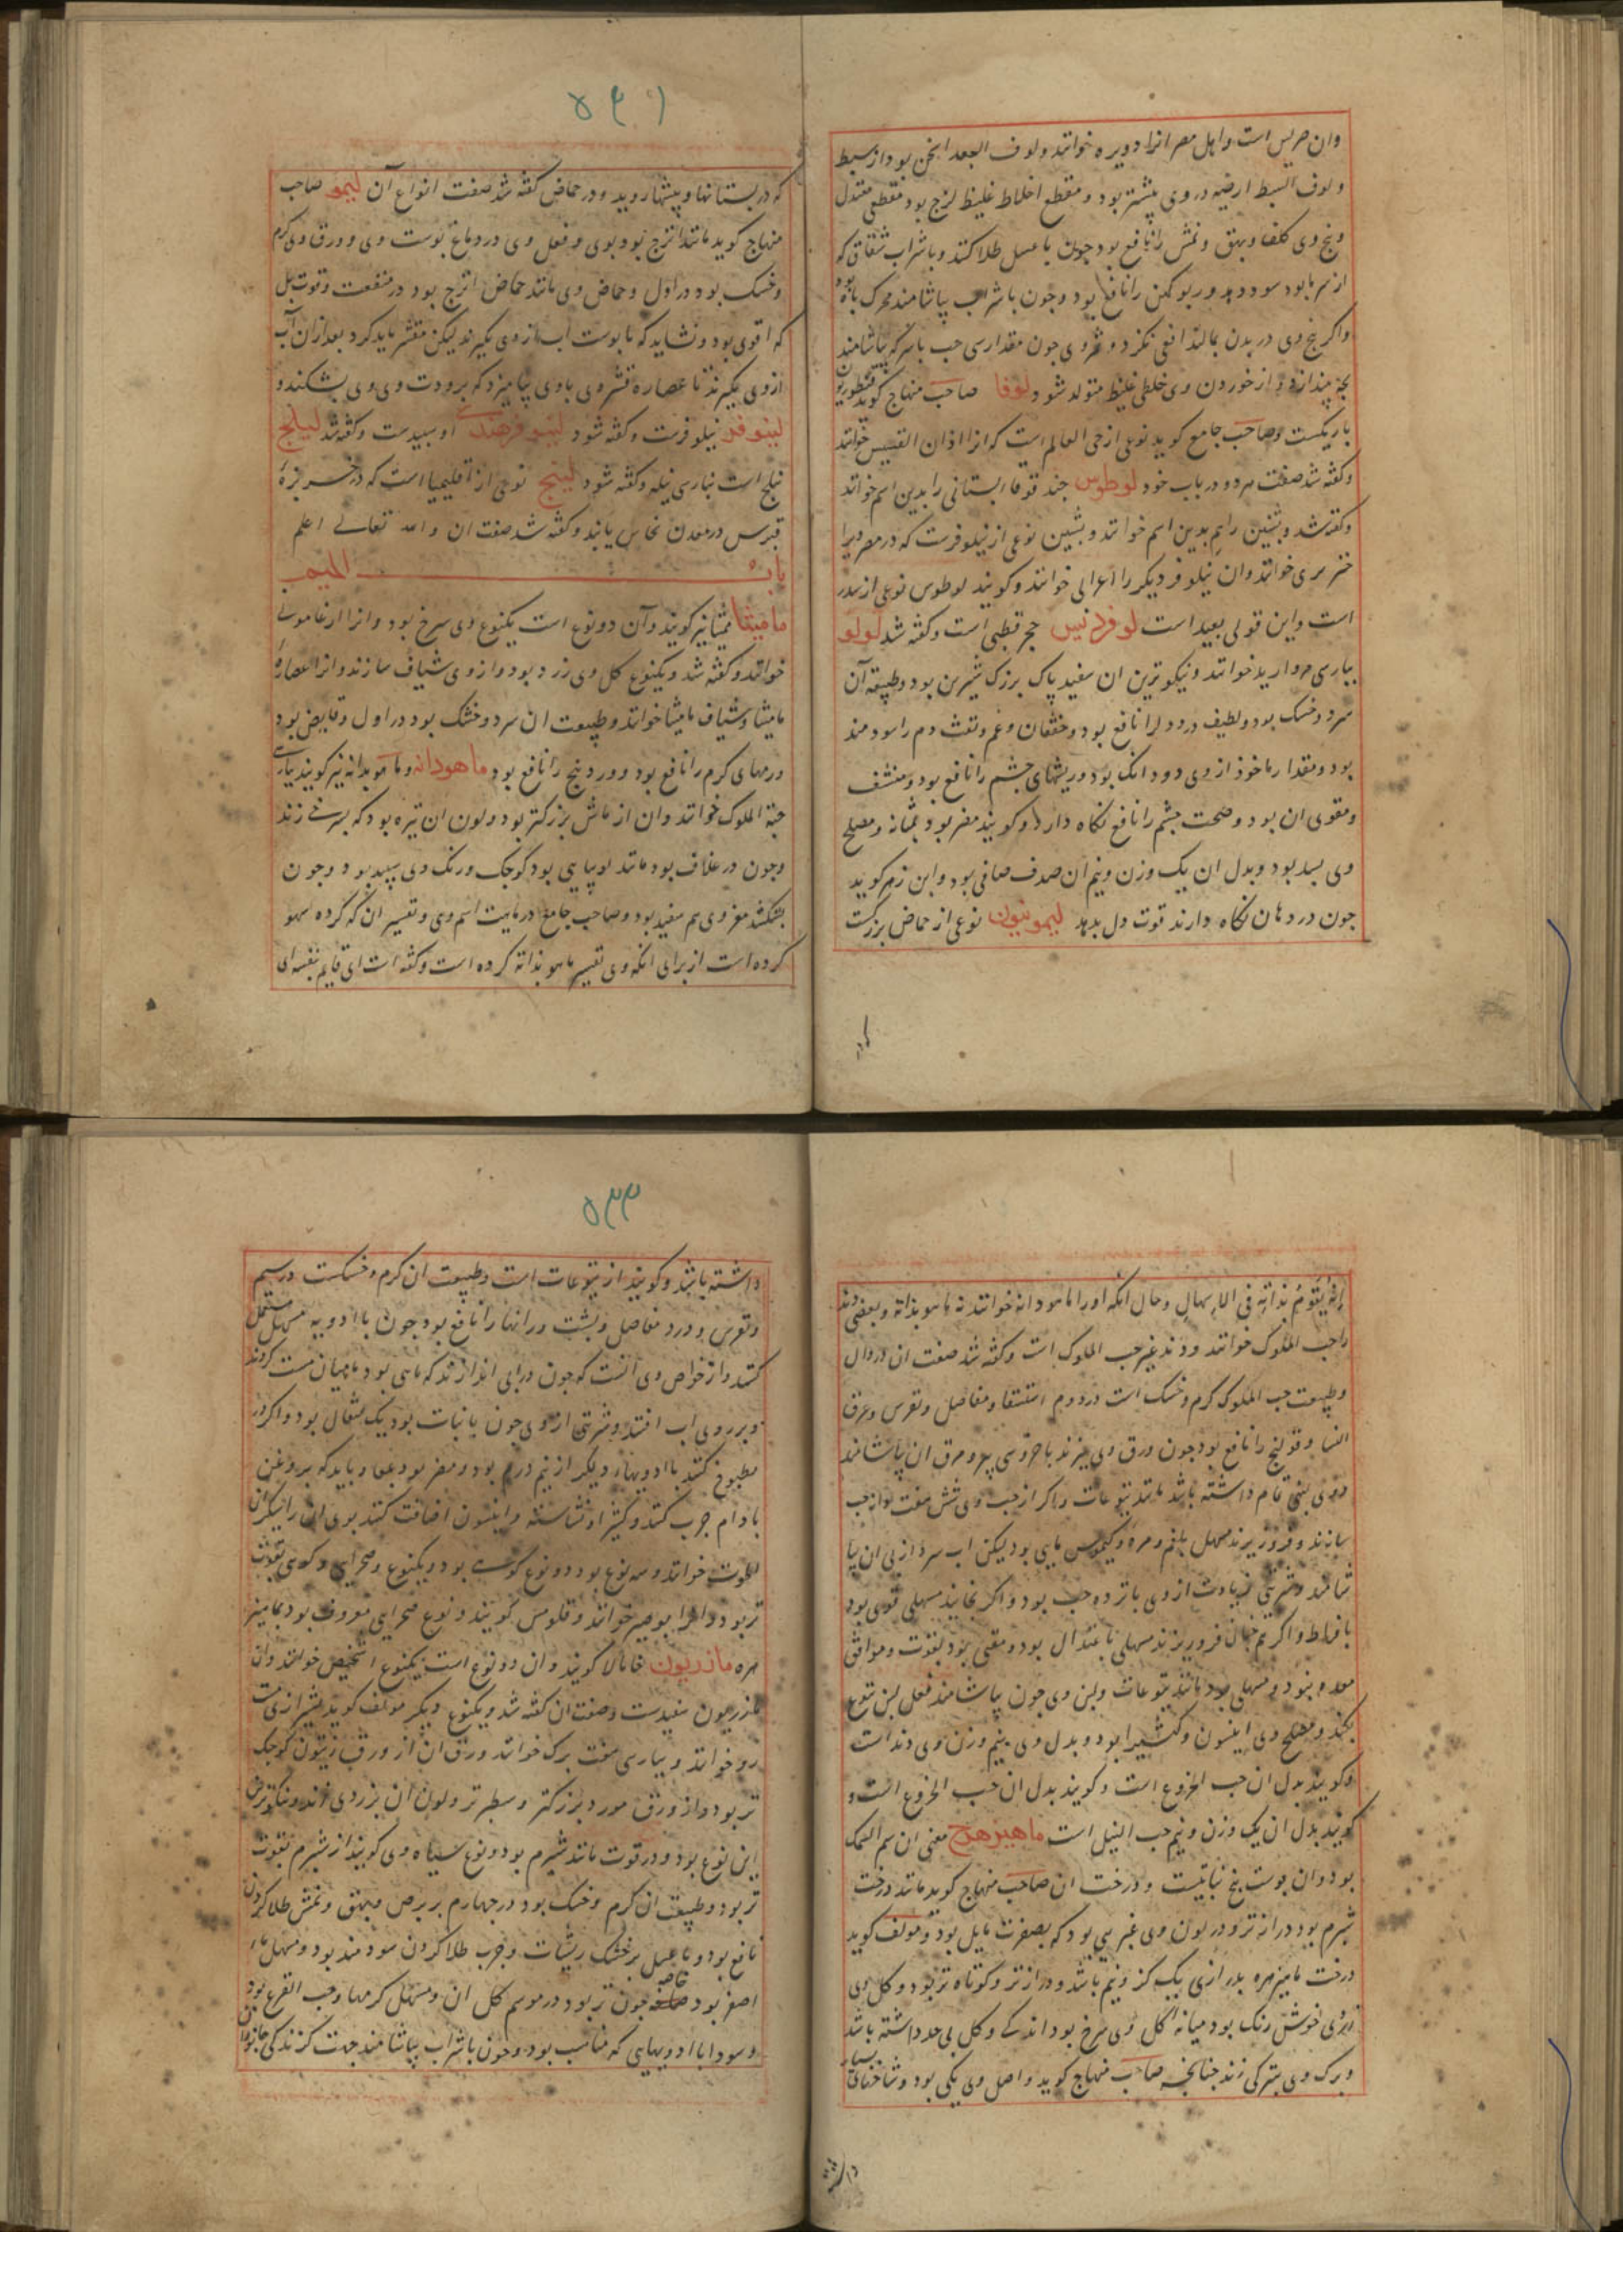 وان صریس است واهل مصر انرا دویره خوانند ولوف الجعد اسخن بود از سبط
ولوف السبط ارضیه در وی بیشتر بود ومقطع اخلاط غلیظ لزج بود مقطعی معتدل
وبیخ وی کلف وبهق ونمش را نافع بود چون با عسل طلا کنند وبا شراب شقاق که
از سرما بود سود دهد وربو کهن را نافع بود وچون با شراب بیاشامند محرک باه بود
واگر بیخ وی در بدن بمالند افعی نگزد وثمر وی چون مقدار سی حب با سرکه بیاشامند
بچه بیندازد واز خوردن وی خلطی غلیظ متولد شود لوفا صاحب منهاج گوید قنطوریون
باریکست وصاحب جامع گوید نوعی از حی العالم است که انرا اذان القسیس خوانند
وگفته شد صفت هر دو در باب خود لوطوس حند قوقا البستانی را بدین اسم خوانند
وگفته شد وبشنین را هم بدین اسم خوانند وبشنین نوعی از نیلوفرست که در مصر ویرا
خنزیری خوانند وان نیلوفر دیگر را اعرابی خوانند وگویند لوطوس نوعی از سدر
است واین قولی بعید است لوفردیس حجر قبطی است وگفته شد لولو
بپارسی مروارید خوانند ونیکوترین ان سفید پاک بزرگ شیرین بود وطبیعت آن
سرد وخشک بود ولطیف در وی دلرا نافع بود وخفقان وغم ونفث دم را سودمند
بود ومقدار ماخوذ از وی دو دانک بود وریشهای چشم را نافع بود ومنشف
ومقوی ان بود وصحت چشم را نافع نگاه دارد وگویند مضر بود بمثانه ومصلح
وی بسد بود وبدل ان یک وزن ونیم ان صدف صافی بود وابن زهر گوید
چون در دهان نگاه دارند قوت دل بدهد لیمونیون نوعی از حماض بزرگست
۵۳۱
که در بستانها وبیشها روید ودر حماض گفته شد صفت انواع آن لیمو صاحب
منهاج گوید مانند اترج بود بوی وفعل وی در دماغ پوست وی وورق وی گرم
وخشک بود در اول وحماض وی مانند حماض اترج بود در منفعت وقوت بل
که اقوی بود ونشاید که با پوست اب از وی بگیرند لیکن مقشر باید کرد بعد از ان آب
از وی بگیرند تا عصاره قشر وی با وی نیامیزد که برودت وی وی بشکند و
لینوفر نیلوفرست وگفته شود لینوفر هندی او سبیدست وگفته شد لیلج
نیلج است بپارسی نیله وگفته شود لینج نوعی از اقلیمیا است که در جزیره
قبرس در معدن نحاس یابند وگفته شد صفت ان والله تعالی اعلم
باب المیم
مامیثا ممیثا نیز گویند وآن دو نوع است یکنوع وی سرخ بود وانرا ارغامونی
خوانند وگفته شد ویکنوع گل وی زرد بود واز وی شیاف سازند وانرا عصاره
مامیثا وشیاف مامیثا خوانند وطبیعت ان سرد وخشک بود در اول وقابض بود
ورمهای گرم را نافع بود وورد ینج را نافع بود ماهودانه وماهوبدانه نیز گویند بپارسی
حبة الملوک خوانند وان از ماش بزرگتر بود ولون ان تیره بود که بسرخی زند
وچون در غلاف بود مانند لوبیایی بود کوچک ورنگ وی سپید بود وچون
بشکنند مغز وی هم سفید بود وصاحب جامع در ماهیت اسم وی وتفسیر ان که کرده سهو
کرده است از برای انکه وی تفسیر ماهو بذاته کرده است وگفته است ای قایم بنفسه ای
انه یقوم بذاته فی الاسهال وحال انکه او را ماهودانه خوانند نه ماهو بذاته وبعضی دند
را حب الملوک خوانند ودند غیر حب الملوک است وگفته شد صفت ان در دال
وطبیعت حب الملوک گرم وخشک است در دوم استسقا ومفاصل ونقرس وعرق
النسا وقولنج را نافع بود چون ورق وی بپزند با خروسی پیر ومرق ان بیاشامند
ووی بیخی تمام داشته باشد مانند یتوعات واگر از حب وی شش هفت
سازند وفرو ریزند مسهل بلغم ومره وکیموس مایی بود لیکن اب سرد از پی ان بیا
شامند وشربتی زیادت از وی پانزده حب بود واگر بخایند مسهلی قوی بود
بافراط واگر همچنان فرو ریزند مسهلی باعتدال بود ومقیی بود بقوت وموافق
معده نبود ومسهلی بود مانند یتوعات ولبن وی چون بیاشامند فعل لبن یتوع
بکند ومصلح وی انیسون وکثیرا بود وبدل وی بنیم وزن وی دند است
وگویند بدل ان حب الخروع است وگویند بدل ان حب الخروع است و
گویند بدل ان یک وزن ونیم حب النیل است ماهیزهرج معنی ان سم السمک
بود وان پوست بیخ نباتیست ودرخت ان صاحب منهاج گوید مانند درخت
شبرم بود دراز تر ودر لون وی غبریی بود که بصفرت مایل بود ومولف گوید
درخت ماهیزهره بدرازی یک گز ونیم باشد ودرازتر وکوتاه تر بود وگل وی
زردی خوش رنگ بود میانه گل وی سرخ بود اندکی وگل بی حد داشته باشد
وبرگ وی بتیرگی زند چنانچه صاحب منهاج گوید واصل وی یکی بود وشاخهای بسیار
۵۳۲
داشته باشد وگویند از یتوعات است وطبیعت ان گرم وخشکست در سیم
ونقرس ودرد مفاصل وپشت ورانها را نافع بود چون با ادویه مسهل مستعمل
کنند واز خواص وی انست که چون در ابی اندازند که ماهی بود ماهیان مست گردند
وبر روی اب افتند وشربتی از وی چون با نبات بود یک مثقال بود واگر در
مطبوخ کنند با ادویهای دیگر از نیم درم بود ومضر بود بمعا وباید که بروغن
بادام چرب کنند وکثیرا ونشاسته وانیسون اضافت کنند بوی
خوانند وسه نوع بود دو نوع کوهی بود ویکنوع صحرایی وکوهی بقوت
تر بود وانرا بوصیر خوانند وقلومس گویند ونوع صحرایی معروف بود بماهیز
هره مازریون خامالا گویند وان دو نوع است یکنوع اشخیص خوانند وان
مازریون سفیدست وصفت ان گفته شد ویکنوع دیگر مولف گوید بشیرازی مست
رو خوانند وبپارسی هفت برگ خوانند ورق ان از ورق زیتون کوچک
تر بود واز ورق مورد بزرگتر وسطبرتر ولون ان بزردی زند ونیکوترین
این نوع بود ودر قوت مانند شبرم بود ونوع سیاه وی گویند از شبرم بقوت
تر بود وطبیعت ان گرم وخشک بود در چهارم بر برص وبهق ونمش طلا کردن
نافع بود وبا عسل بر خشک ریشات وجرب طلا کردن سودمند بود ومسهل ماء
اصفر بود خاصه چون تر بود در موسم گل ان ومسهل کرمها وحب القرع بود
وسودا با ادویهایی که مناسب بود وچون با شراب بیاشامند جهت گزندگی جانوران